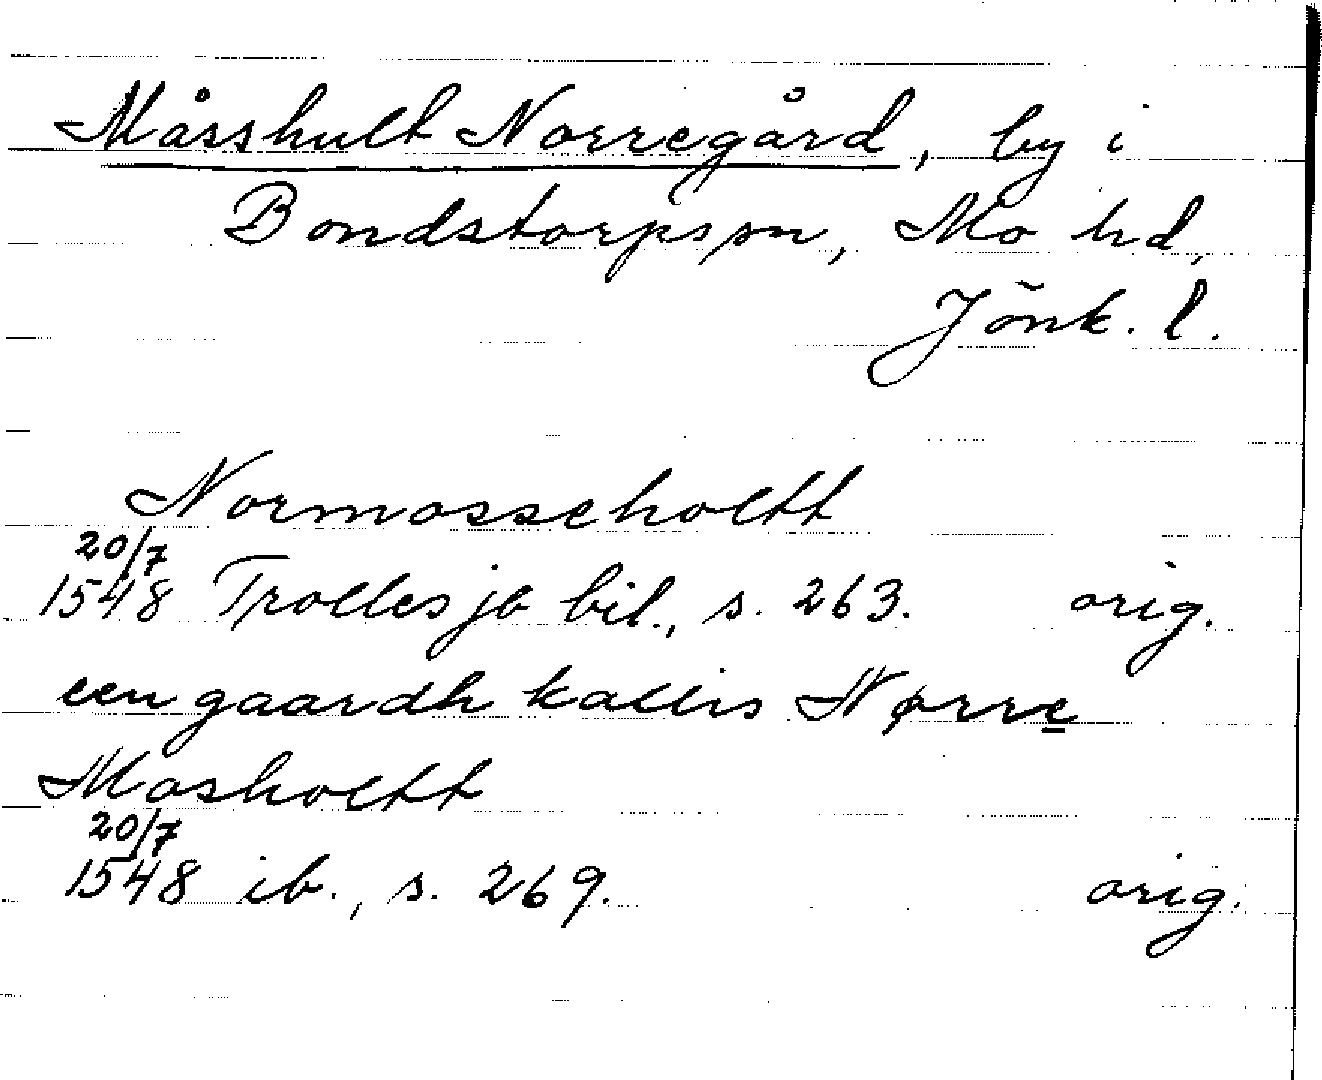 Måsshult Norregård, by i
Bondstorps sn, Mo hd,
Jönk. l.
Normosseholtt
20/7
1548 Trolles jb bil., s. 263. orig.
een gaardh kallis Nørre
Mosholtt
20/7
1548 ib., s. 269. orig.